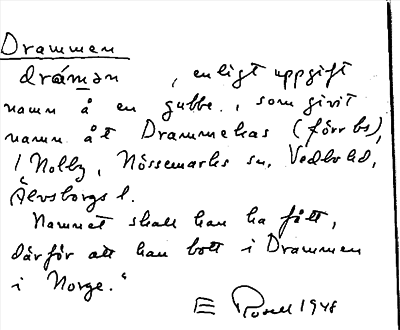 Drammen
drámən , enligt uppgift
namn å en gubbe, som givit
namn åt Drammekas (förr bs),
i Nolby, Nössemarks sn, Vedbo hd,
Älvsborgs l.
Namnet skall han ha fått,
därför att han bott i Drammen
i Norge."
E 1948